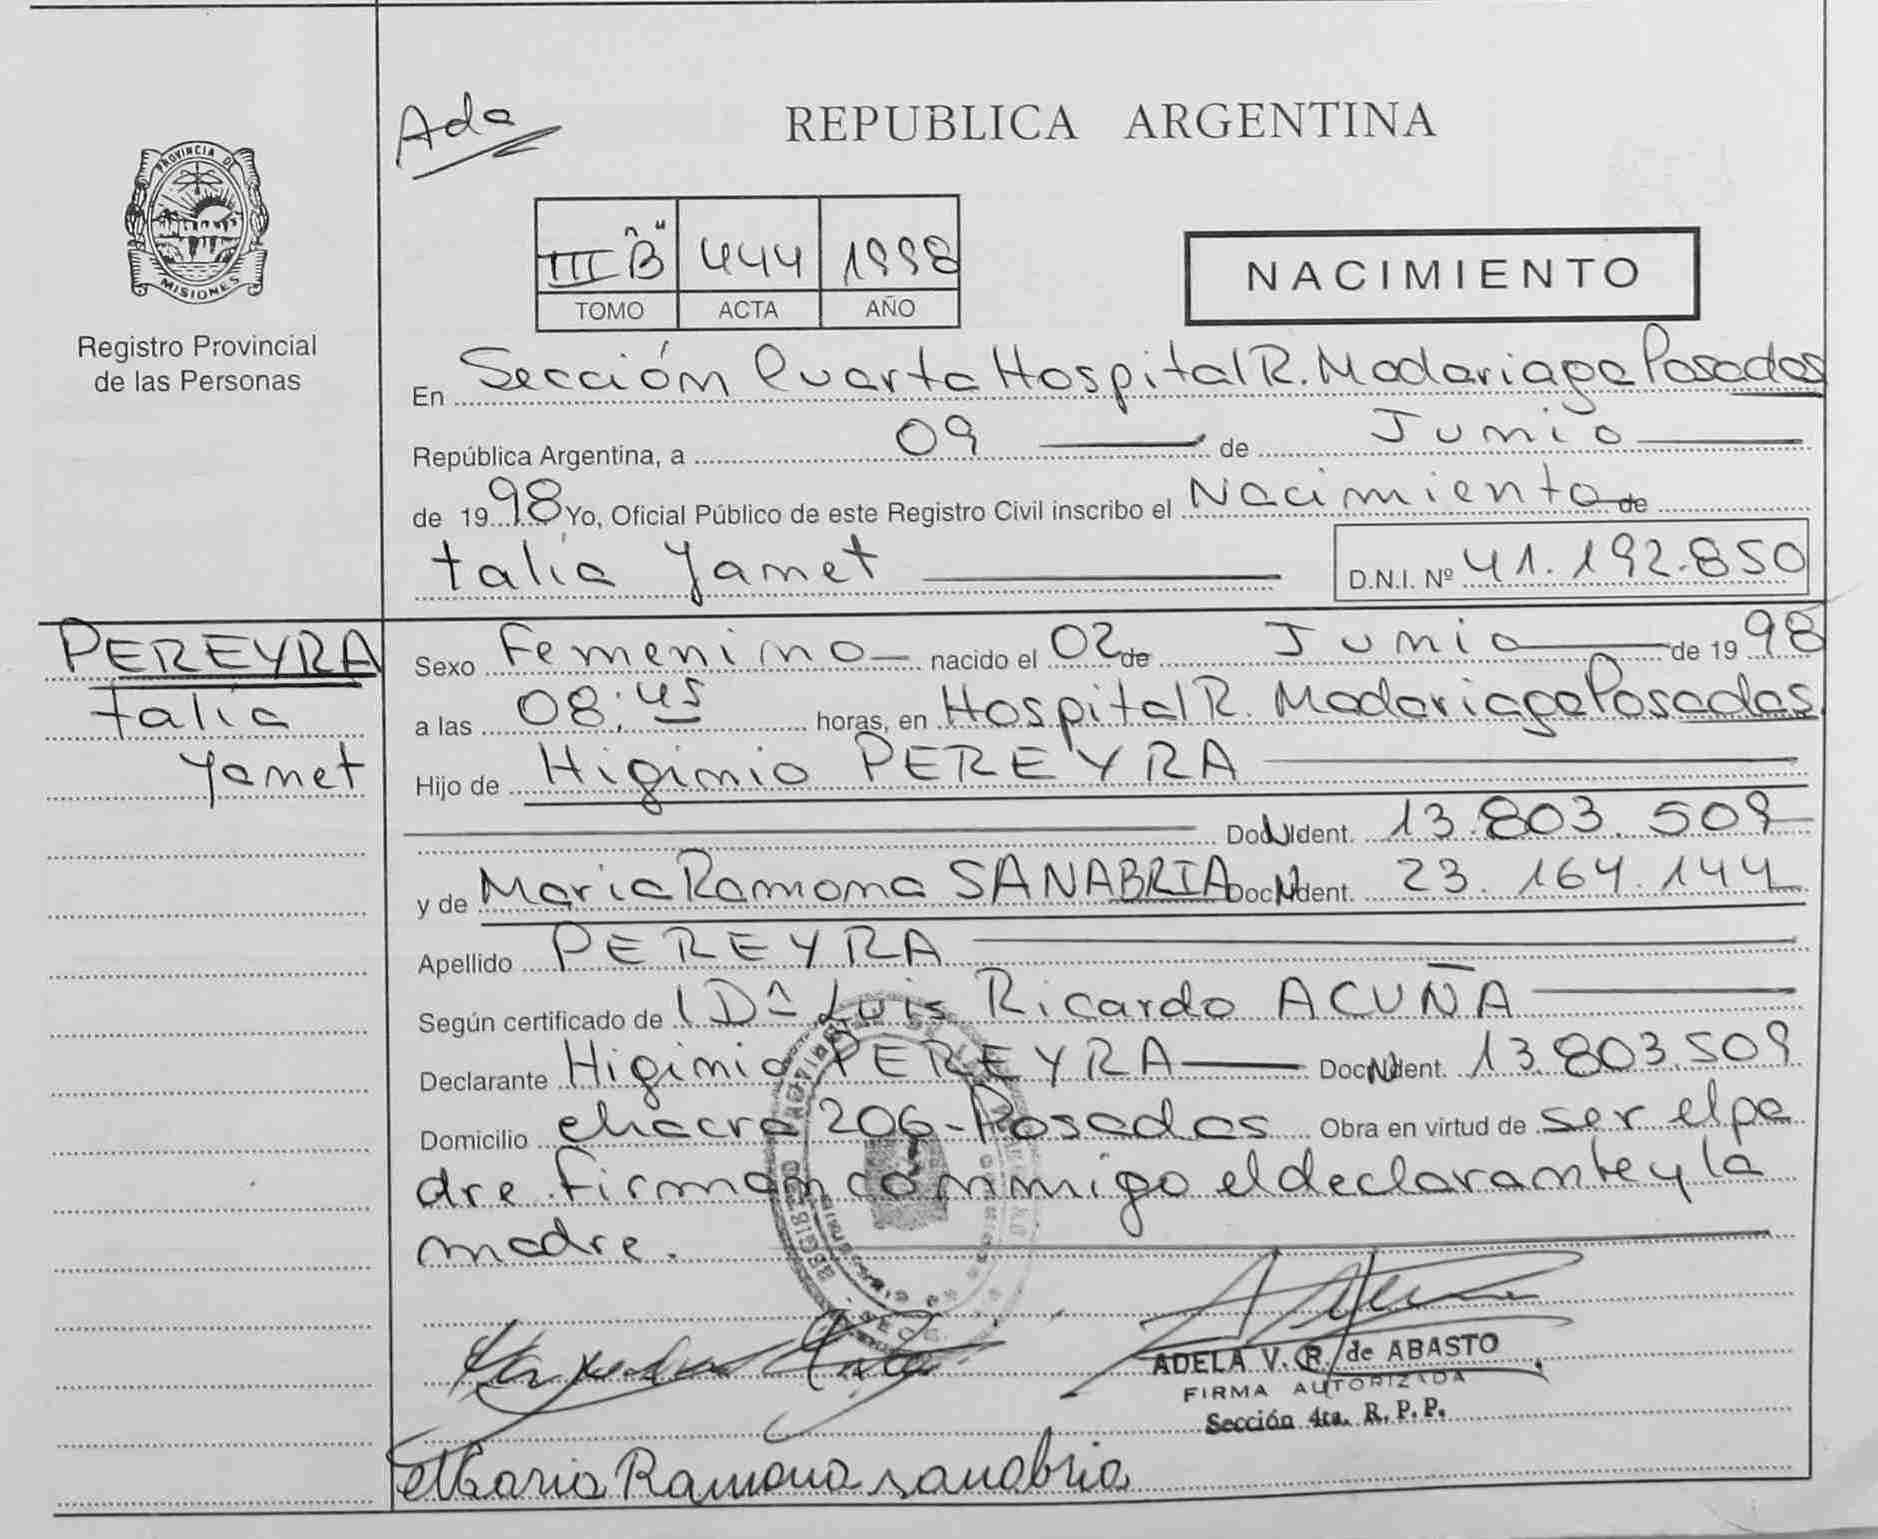 Ada
REPUBLICA ARGENTINA
PROVINCIA DE
MISIONES
Registro Provincial
de las Personas
III "B" 444 1998
TOMO ACTA AÑO
NACIMIENTO
En Sección Cuarta Hospital R. Madariaga Posadas
República Argentina, a 09 de Junio
de 1998 Yo, Oficial Público de este Registro Civil inscribo el Nacimiento de
talia Yamet D.N.I. Nº 41.192.850
PEREYRA
talia
Yamet
Sexo Femenino nacido el 02 de Junio de 1998
a las 08:45 horas, en Hospital R. Madariaga Posadas
Hijo de Higinio PEREYRA
Doc. Ident. 13.803.509
y de Maria Ramona SANABRIA Doc. Ident. 23.164.144
Apellido PEREYRA
Según certificado de Luis Ricardo ACUÑA
Declarante Higinio PEREYRA Doc. Ident. 13.803.509
Domicilio chacra 206-Posadas Obra en virtud de ser el pa
dre. Firman conmigo el declarante y la
madre.
ADELA V. R. de ABASTO
FIRMA AUTORIZADA
Sección 4ta. R. P. P.
Maria Ramona sanabria